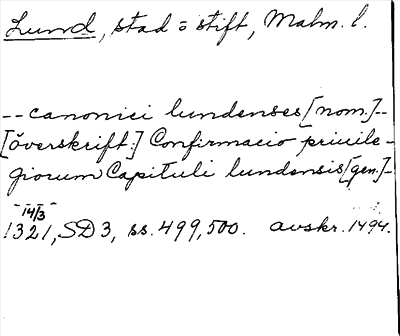 Lund, stad o stift, Malm. l.
-- canonici lundenses [nom.] --
[överskrift:] Confirmacio priuile-
giorum Capituli lundensis [gen.] --
14/3
1321, SD 3, ss. 499, 500. avskr. 1494.